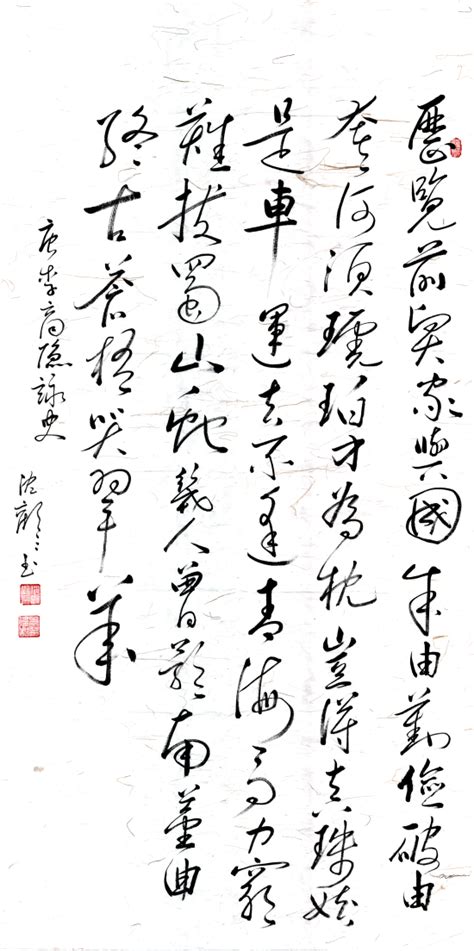 歷覽前賢家與國成由勤儉破由
奢何須琥珀才為枕豈得真珠始
是車運去不逢青海馬力窮
難拔蜀山蛇幾人曾預南薰曲
終古蒼梧哭翠華
唐李商隱詠史